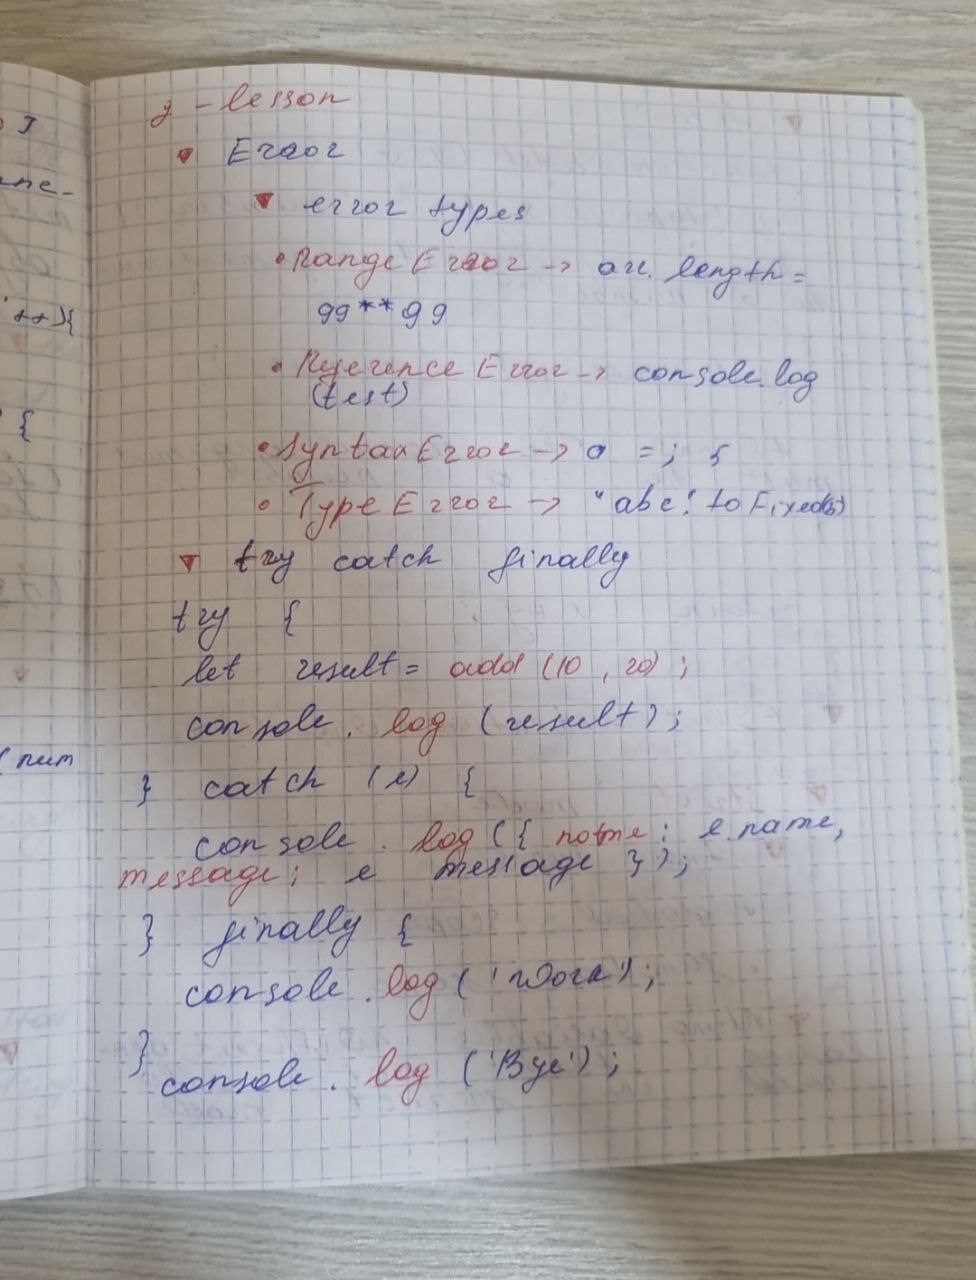 g - lesson
Error
error types
Range Error -> arr. length =
99**99
Reference Error -> console.log
(test)
Syntax Error -> a = ; 5
Type Error -> "abc". toFixed(5)
try catch finally
try {
let result = add (10, 20) ;
console . log (result) ;
} catch (e) {
console . log ({ name: e.name,
message: e message } ) ;
} finally {
console . log ( 'Work') ;
}
console . log ('Bye') ;
ne-
++){
{
(num